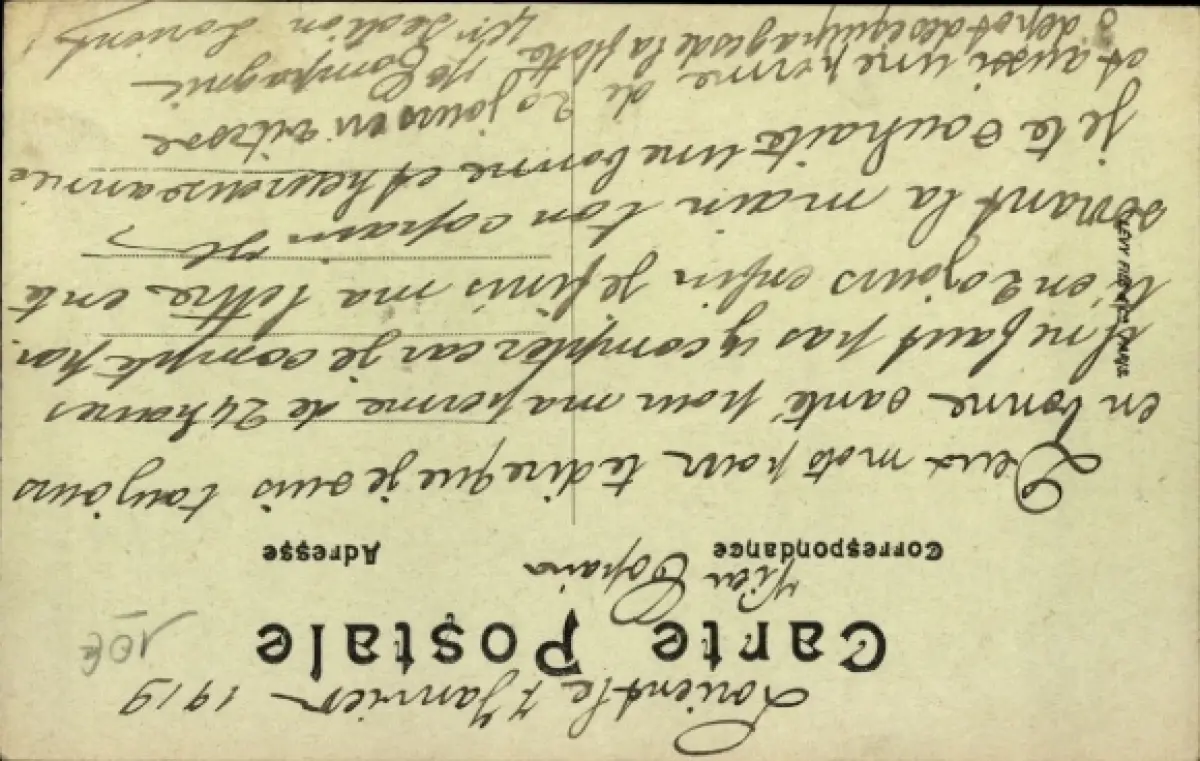 Lorient le 7 Janvier 1919
10 €
Carte Postale
Cher Copain
Correspondance
Adresse
Deux mots pour te dire que je suis toujours
en bonne santé pour ma perme de 24 heures
il ne faut pas y compter car je compte par
ti en 20 jours enfin je finis ma lettre en te
serrant la main ton copain
je te souhaite une bonne et heureuse année
et aussi une perme de 20 jours en vitesse
dépot des équipages de la flotte
Compagnie
section Lorient